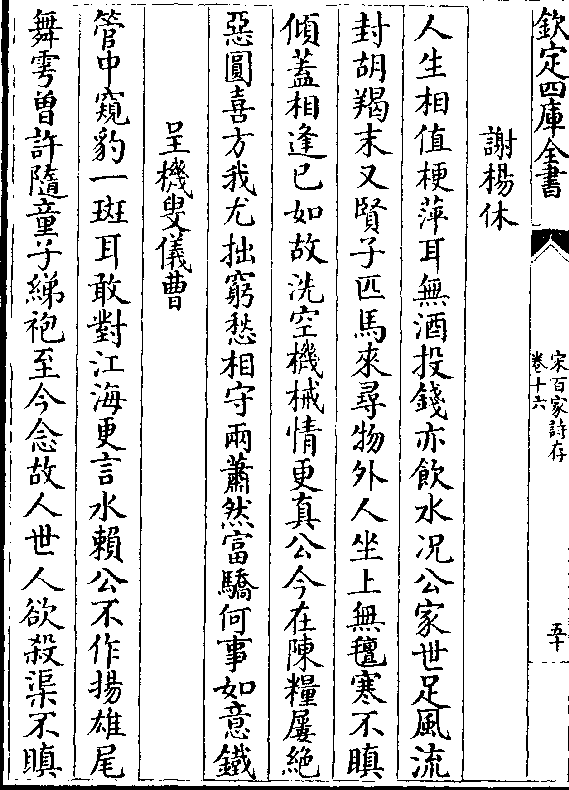 欽定四庫全書
宋百家詩存
卷十六
五十
謝楊休
人生相值梗萍耳無酒投錢亦飲水况公家世足風流
封胡羯末又賢子匹馬來尋物外人坐上無氊寒不瞋
傾葢相逢已如故洗空機械情更真公今在陳糧屢絶
惡圓喜方我尤拙窮愁相守兩蕭然富驕何事如意鐵
呈機叟儀曹
管中窺豹一斑耳敢對江海更言水賴公不作揚雄尾
舞雩曽許隨童子綈袍至今念故人世人欲殺渠不瞋